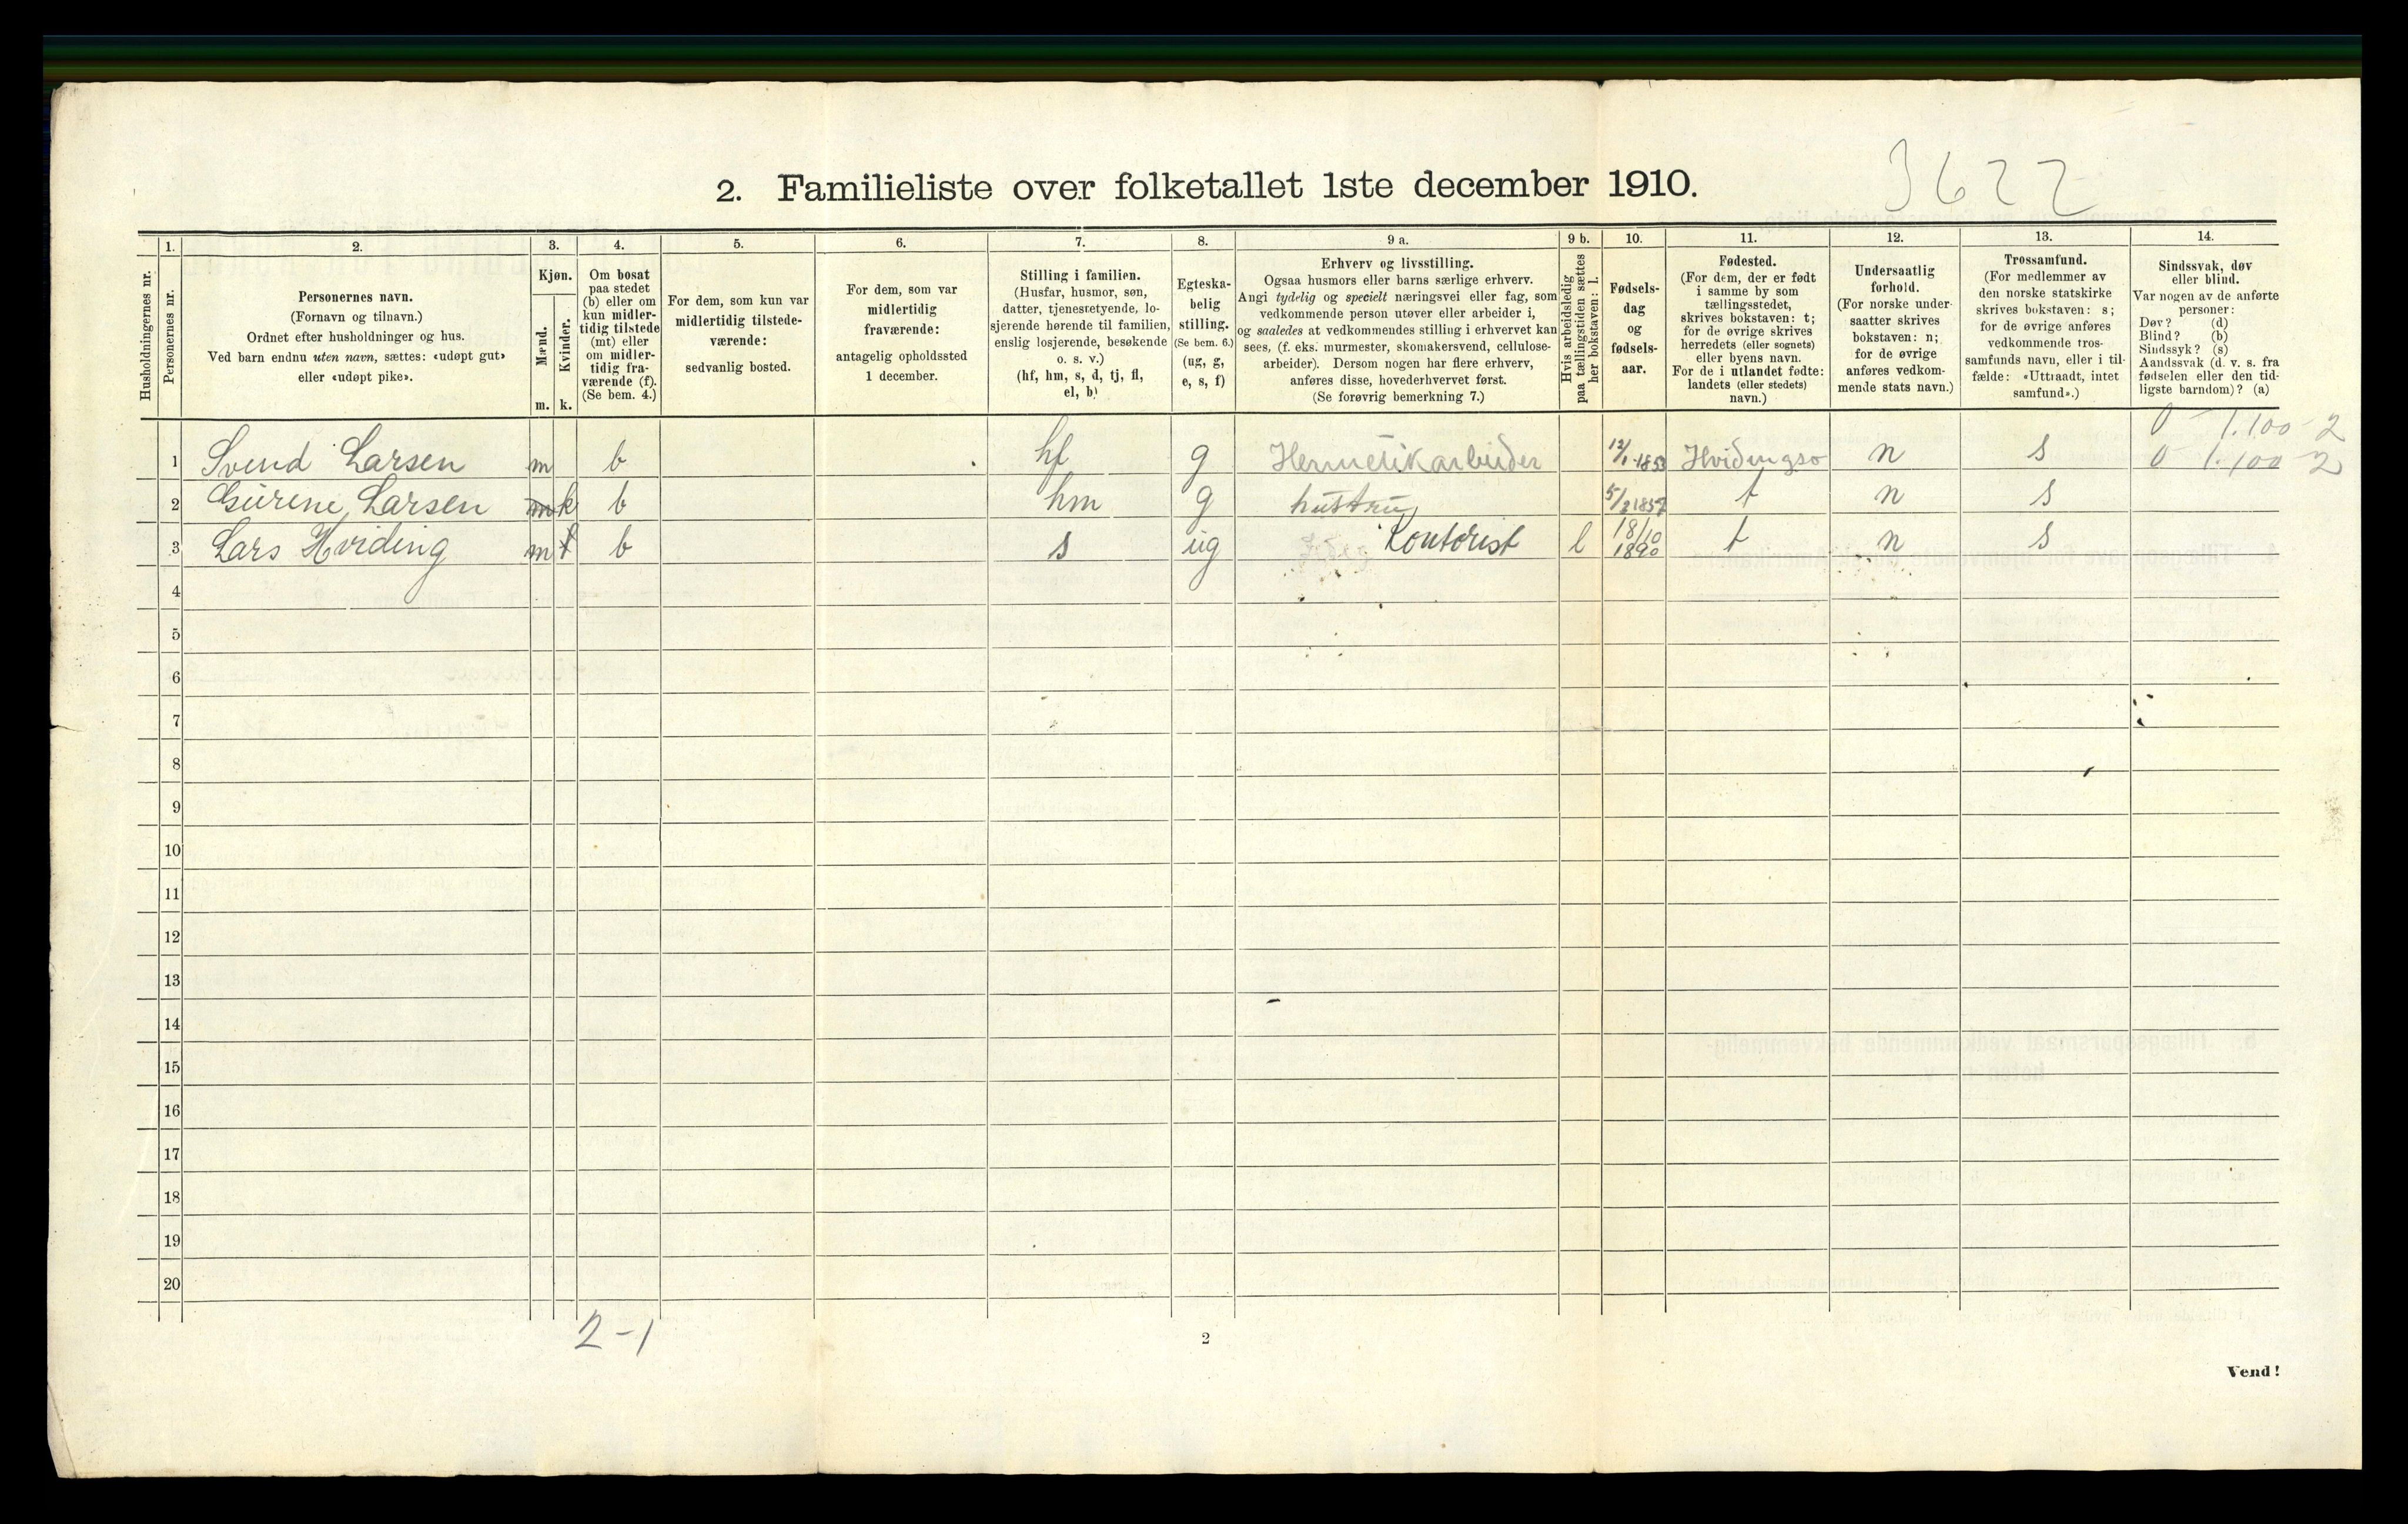 3622
2. Familieliste over folketallet 1ste december 1910.
Husholdningernes nr.
1.
Personernes nr.
2.
Personernes navn.
(Fornavn og tilnavn.)
Ordnet efter husholdninger og hus.
Ved barn endnu uten navn, sættes: «udøpt gut»
eller «udøpt pike».
3.
Kjøn.
Mænd.
m.
Kvinder.
k.
4.
Om bosat
paa stedet
(b) eller om
kun midler-
tidig tilstede
(mt) eller
om midler-
tidig fra-
værende (f).
(Se bem. 4.)
5.
For dem, som kun var
midlertidig tilstede-
værende:
sedvanlig bosted.
6.
For dem, som var
midlertidig
fraværende:
antagelig opholdssted
1 december.
7.
Stilling i familien.
(Husfar, husmor, søn,
datter, tjenestetyende, lo-
sjerende hørende til familien,
enslig losjerende, besøkende
o. s. v.)
(hf, hm, s, d, tj, fl,
el, b)
8.
Egteska-
belig
stilling.
(Se bem. 6.)
(ug, g,
e, s, f)
9 a.
Erhverv og livsstilling.
Ogsaa husmors eller barns særlige erhverv.
Angi tydelig og specielt næringsvei eller fag, som
vedkommende person utøver eller arbeider i,
og saaledes at vedkommendes stilling i erhvervet kan
sees, (f. eks. murmester, skomakersvend, cellulose-
arbeider). Dersom nogen har flere erhverv,
anføres disse, hovederhvervet først.
(Se forøvrig bemerkning 7.)
9 b.
Hvis arbeidsledig
paa tællingstiden sættes
her bokstaven: l.
10.
Fødsels-
dag
og
fødsels-
aar.
11.
Fødested.
(For dem, der er født
i samme by som
tællingsstedet,
skrives bokstaven: t;
for de øvrige skrives
herredets (eller sognets)
eller byens navn.
For de i utlandet fødte:
landets (eller stedets)
navn.)
12.
Undersaatlig
forhold.
(For norske under-
saatter skrives
bokstaven: n;
for de øvrige
anføres vedkom-
mende stats navn.)
13.
Trossamfund.
(For medlemmer av
den norske statskirke
skrives bokstaven: s;
for de øvrige anføres
vedkommende tros-
samfunds navn, eller i til-
fælde: «Uttraadt, intet
samfund».)
14.
Sindssvak, døv
eller blind.
Var nogen av de anførte
personer:
Døv? (d)
Blind? (b)
Sindssyk? (s)
Aandssvak (d. v. s. fra
fødselen eller den tid-
ligste barndom)? (a)
0 - 1.100 - 2
1 Svend Larsen m b hf g Hermetikarbeider 12/1 1853 Hvidingsø n s 0 1.100 - 2
2 Gurene Larsen m k b hm g hustru 5/2 1857 t n s
3 Lars Hviding m b s ug Kontorist l 18/10 1890 t n s
4
5
6
7
8
9
10
11
12
13
14
15
16
17
18
19
20
2-1
2
Vend!